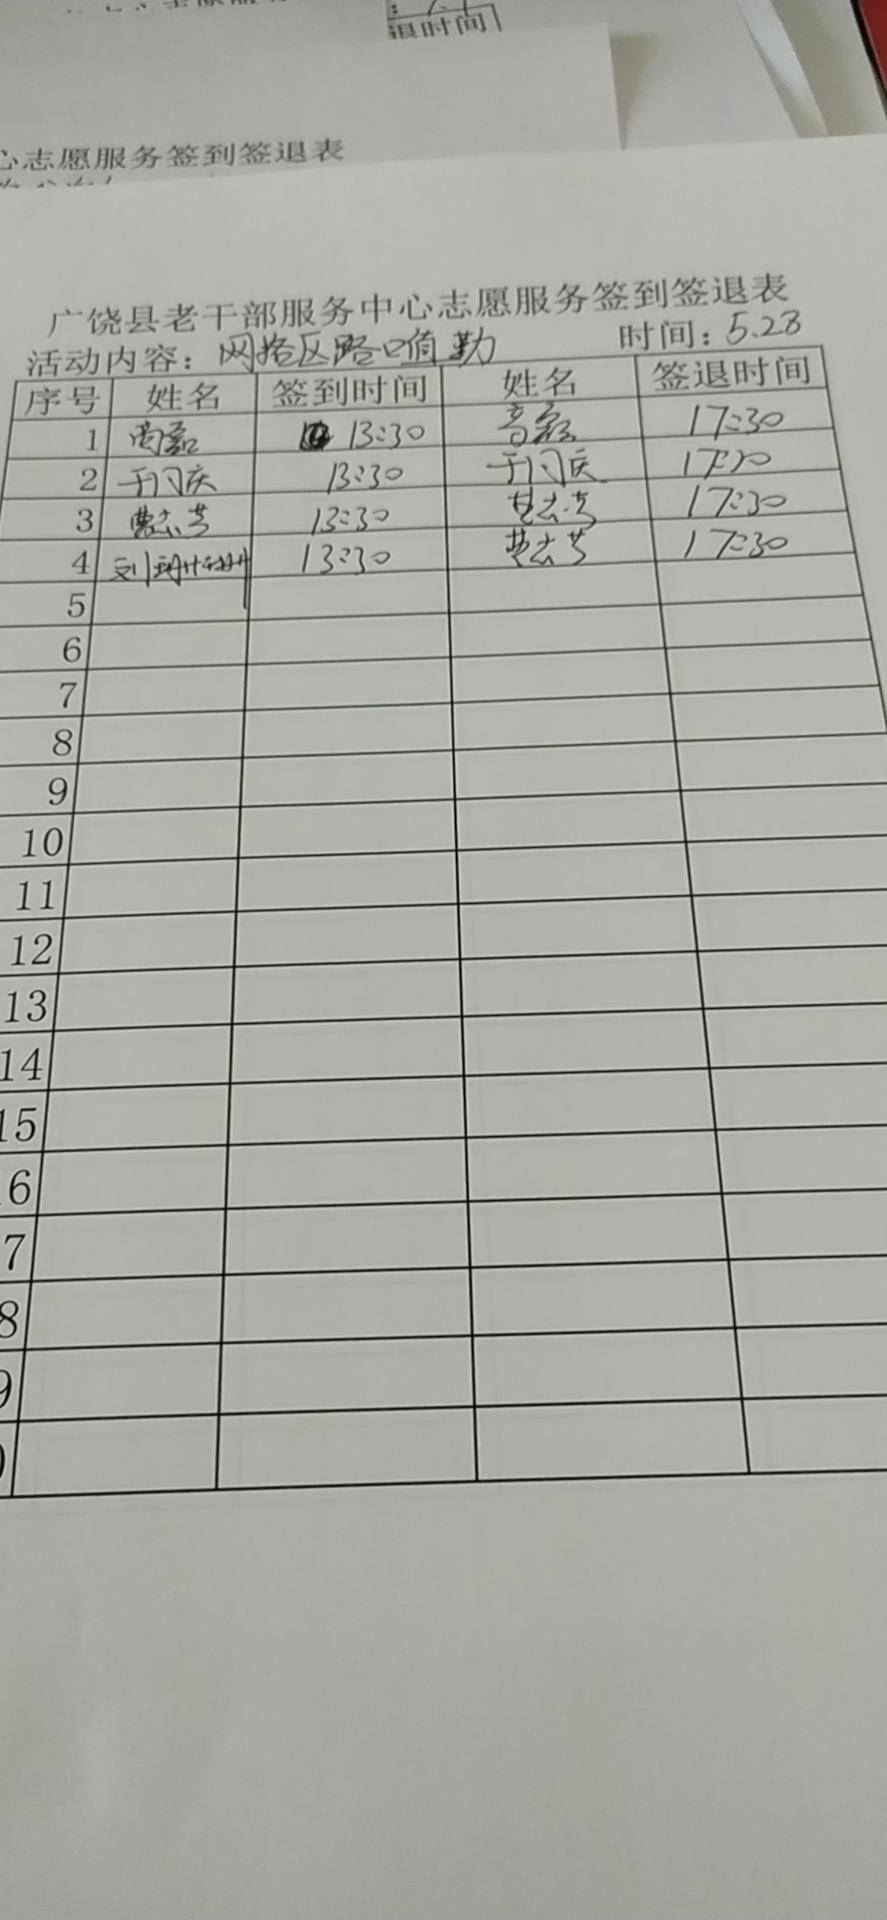 退时间
心志愿服务签到签退表
广饶县老干部服务中心志愿服务签到签退表
活动内容：网格区路口值勤 时间：5.23
序号 姓名 签到时间 姓名 签退时间
1 13:30 17:30
2 于门庆 13:30 于门庆 17:30
3 曹志芳 13:30 17:30
4 13:30 17:30
5
6
7
8
9
10
11
12
13
14
15
6
7
8
9